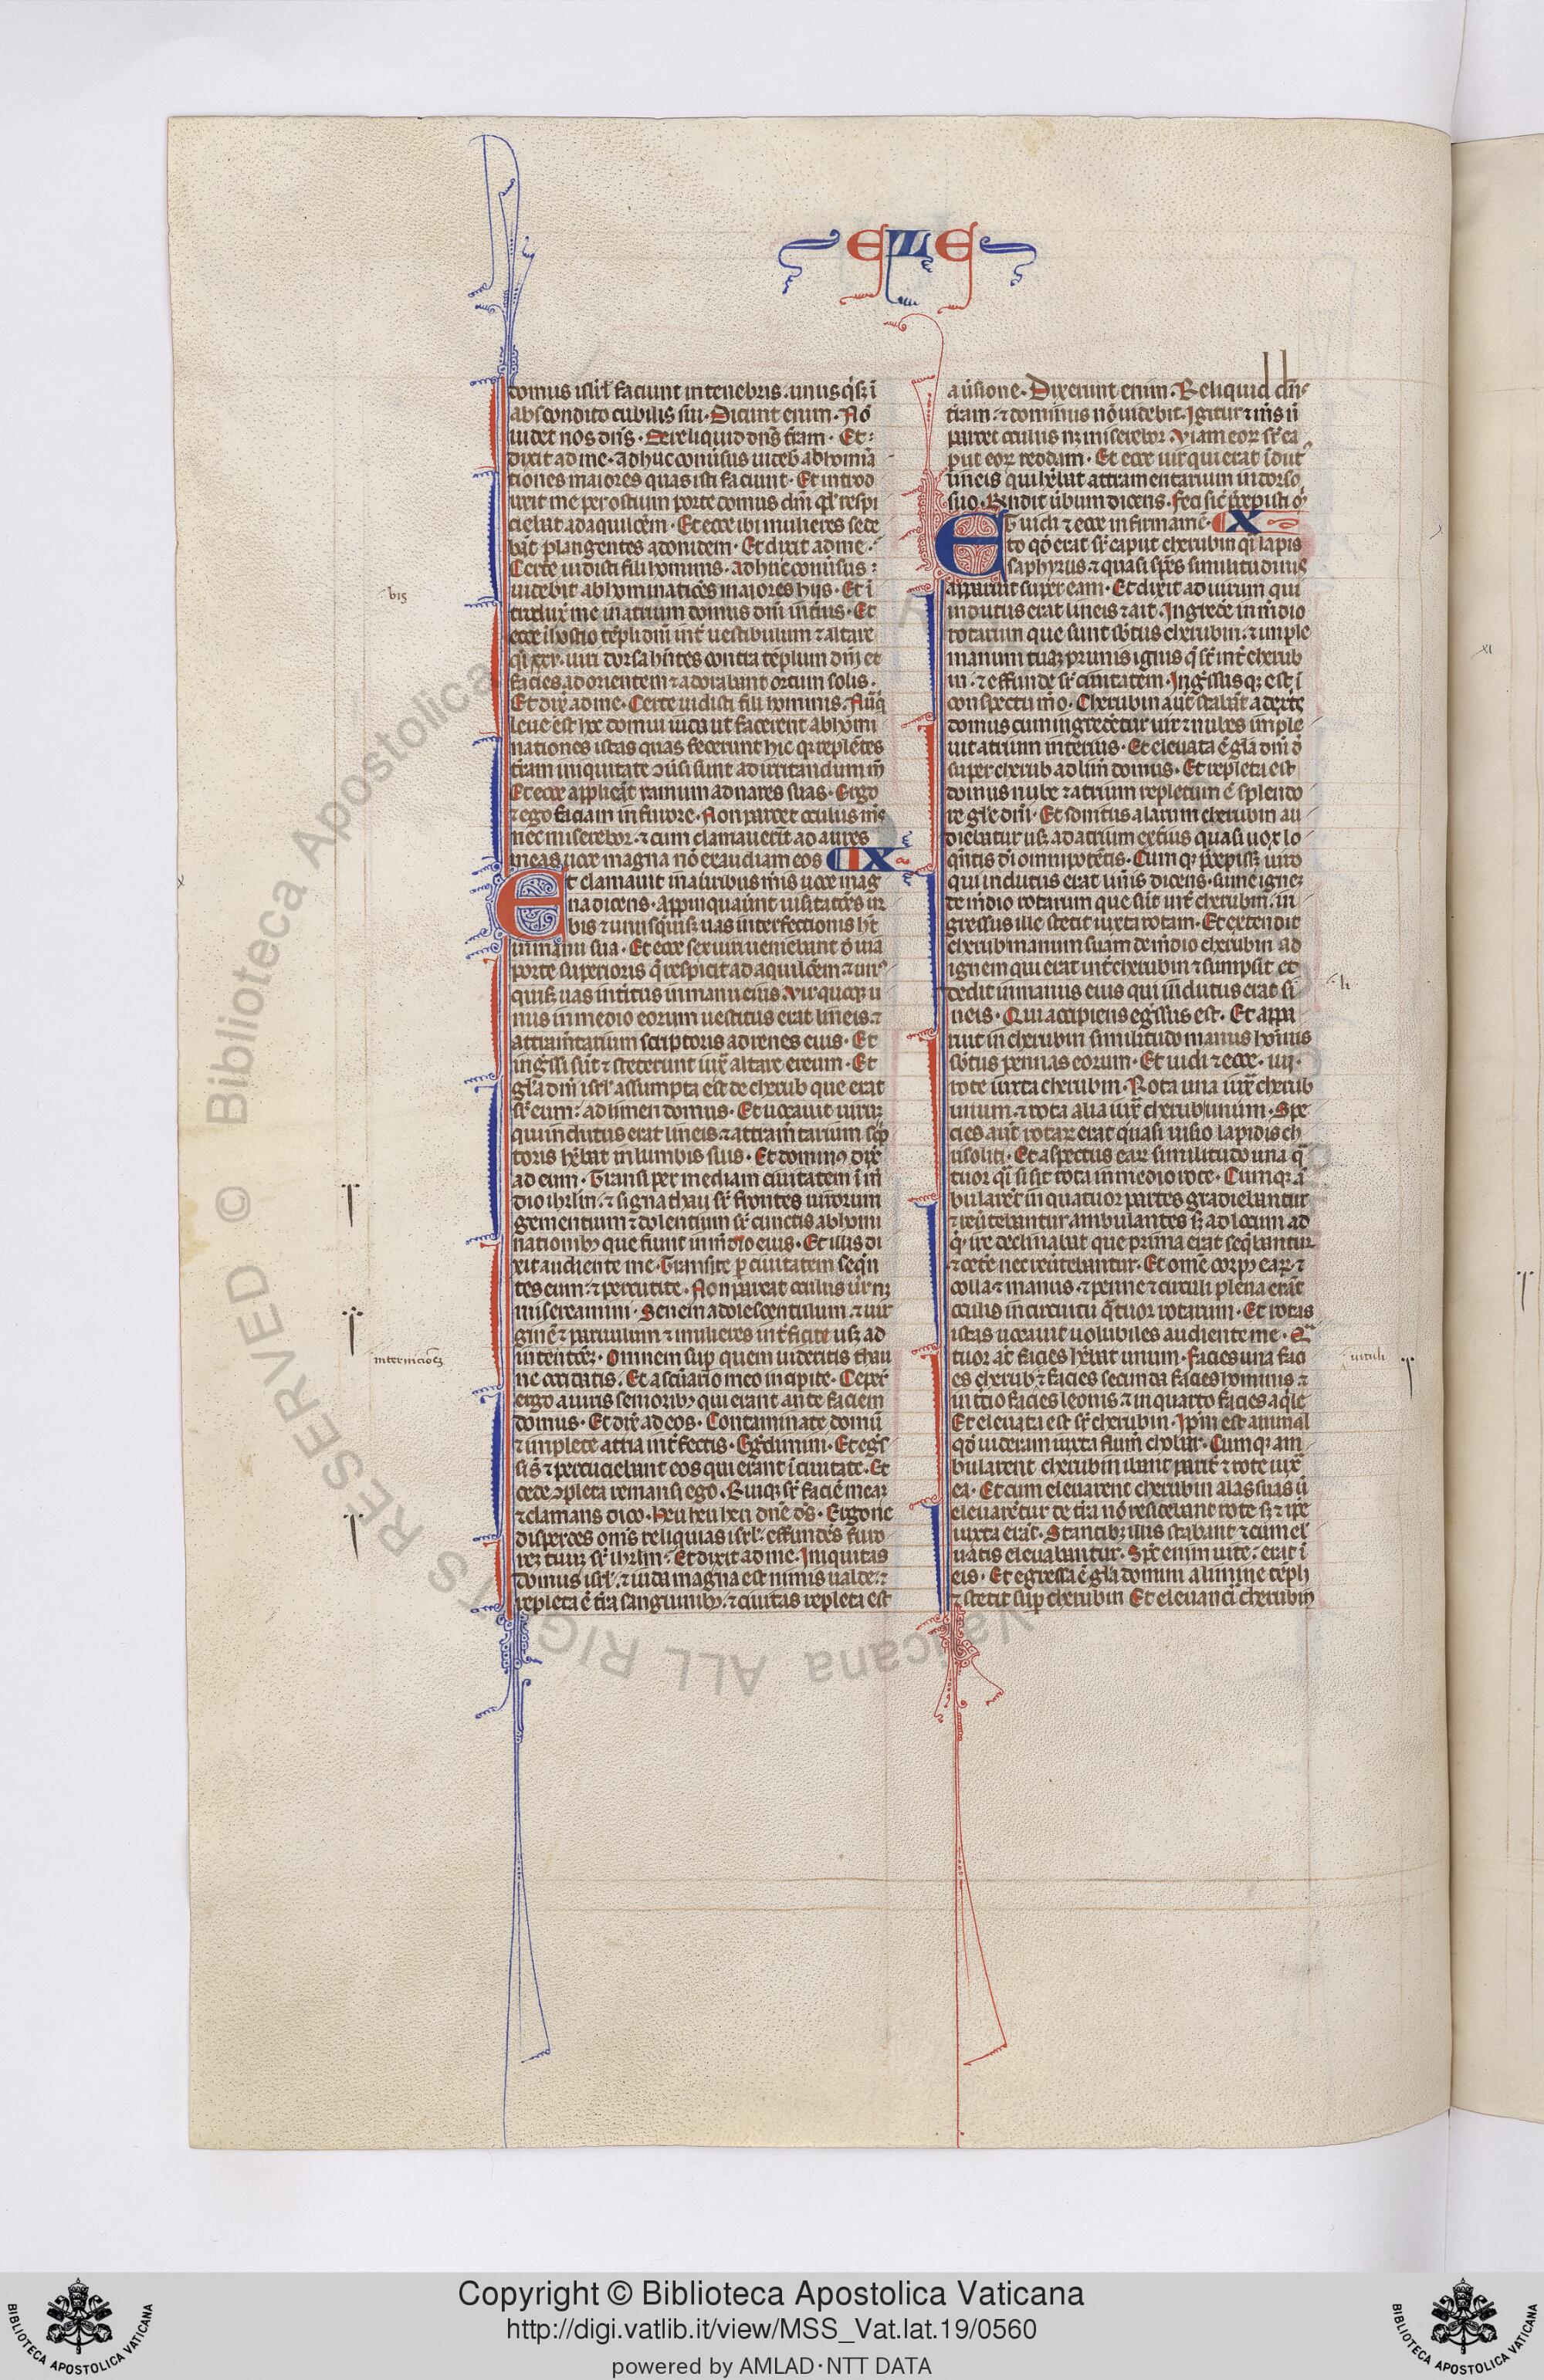 EZE
domus isrl̃ faciunt in tenebris. unus q̇sq; ī
abscondito cubilis sui. Dicunt enim. Nō
uidet nos dn̄s. Dereliquid dn̄s t̃ram. Et
dixit ad me. adhuc conuersus uideb abhomīa
tiones maiores quas isti faciunt. Et introd
uxit me per ostium porte domus dn̄i q̄ respi
ciebat ad aquilōem. Et ecce ibi mulieres sede
bāt plangentes adonidem. Et dixit ad me.
Certe uidisti fili hominis. adhuc conuersus
uidebit abhominatiōes maiores hijs. Et ī
trodux̃ me in atrium domus dn̄i int̃ius. Et
ecce ī hostio tēpli dn̄i int̃ uestibulum ⁊ altare
q̄i xxv. uiri dorsa hn̄tes contra tēplum dn̄i et
facies ad orientem ⁊ adorabant ortum solis.
Et dix̃ ad me. Certe uidisti fili hominis. Nūq̇d
leue est hec domui iuda ut facerent abhomi
nationes istas quas fecerunt hic q̇ replētes
t̃ram iniquitate ɔuersi sunt ad irritandum m̄
Et ecce applicāt ramum ad nares suas. Ergo
⁊ ego faciam in furore. Non parcet oculus m̄s
nec miserebor. ⁊ cum clamauerīt ad aures
meas uoce magna nō exaudiam eos IX
Et clamauit in auribus m̄is uoce mag
na dicens. Appinquauer̄t uisitatiōes ur
bis ⁊ unusq̇sq; uas interfectionis h̄t
in manu sua. Et ecce sex uiri ueniebant d̄ uia
porte superioris q̄ respicit ad aquilōem ⁊ uni9
cuiusq; uas int̃itus in manu eius. Vir quoq; u
nus in medio eorum uestitus erat lineis. ⁊
attram̄tarium scriptoris ad renes eius. Et
ingr̄ssi sūt ⁊ steterunt iux̃ altare ereum. Et
gl̃a dn̄i isrl̃ assumpta est de cherub que erat
sr̄ eum. ad limen domus. Et uocauit uirum
qui indutus erat lineis. ⁊ attram̄tarium scp̃
toris hēbat in lumbis suis. Et dominus dix̃
ad eum. Transi per mediam ciuitatem ī m̄
dio ihrl̃m. ⁊ signa thau sr̄ frontes uirorum
gementium ⁊ dolentium sr̄ cunctis abhomi
nationib; que fiunt in m̄dio eius. Et illis di
xit audiente me. Transite p ciuitatem seq̄n
tes eum. ⁊ percutite. Non parcat oculus ūr n;
misereamini. Senem adolescentulum. ⁊ uir
ginē ⁊ paruulum ⁊ mulieres int̃ficite usq; ad
intentōem. Omnem sup quem uideritis thau
ne occidatis. Et a scūario meo incipite. Ceper̄
ergo a uiris seniorib; qui erant ante faciem
domus. Et dix̃ ad eos. Contaminate domū
⁊ implete atria int̃fectis. Egredimini. Et egr̄s
si s̄t ⁊ percuciebant eos qui erant ī ciuitate. Et
cede ɔpleta remansi ego. Ruiq; sr̄ faciē meam
⁊ clamans dico. Heu heu heu dn̄e ds̄. Ergone
disperdes om̄s reliquias isrl̃. effundēs furo
rem tuum sr̄ ihrl̃m. Et dixit ad me. Iniquitas
domus isrl̃. ⁊ iuda magna est nimis ualde. ⁊
repleta ē t̃ra sanguinib;. ⁊ ciuitas repleta est
auersione. Dixerunt enim. Reliquid dn̄s
t̃ram. ⁊ dominus nō uidebit. Igitur ⁊ m̄s n̄
parcet oculus n; miserebor. Viam eor̄ sr̄ ca
put eor̄ reddam. Et ecce uir qui erat īdut9
lineis qui hēbat attramentarium in dorso
suo. Rn̄dit uerbum dicens. Feci sic̄ p̄cepisti m̄
Et uidi ⁊ ecce in firmamē X
to qd̄ erat sr̄ caput cherubin q̄i lapis
saphyrus. ⁊ quasi sp̄es similitudinis
apparuit super eam. Et dixit ad uirum qui
indutus erat lineis ⁊ ait. Ingredere in m̄dio
rotarum que sunt sb̄tus cherubin. ⁊ imple
manum tuam prunis ignis q̄ st̄ int̃ cherub
in. ⁊ effunde sr̄ ciuitatem. Ingr̄ssusq; est ī
conspectu m̄o. Cherubin aut̄ stabāt a dextris
domus cum ingrederetur uir. ⁊ nubes imple
uit atrium interius. Et eleuata ē gl̃a dn̄i d̄
super cherub ad lim̄ domus. Et repleta est
domus nube. ⁊ atrium repletum ē splendo
re gl̃e dn̄i. Et sonitus alarum cherubin au
diebatur usq; ad atrium ext̃ius quasi uox lo
q̄ntis dī omnipotētis. Cum q; p̄cepisset uiro
qui indutus erat lin̄is dicens. Sume ignem
de m̄dio rotarum que sūt int̃ cherubin. in
gressus ille stetit iuxta rotam. Et extendit
cherub manum suam de m̄dio cherubin ad
ignem qui erat int̃ cherubin ⁊ sumpsit et
dedit in manus eius qui indutus erat li
neis. Qui accipiens egr̄ssus est. Et appa
ruit in cherubin similitudo manus hoīnis
sb̄tus pennas eorum. Et uidi ⁊ ecce. iiij.
rote iuxta cherubin. Rota una iux̃ cherub
unum. ⁊ rota alia iux̃ cherub unum. Spe
cies aut̄ rotar̄ erat quasi uisio lapidis ch
risoliti. Et aspectus ear̄ similitudo una q̄
tuor q̄i si sit rota in medio rote. Cumq; ā
bularēt in quatuor partes gradiebantur
⁊ ñ reuertebantur ambulantes s; ad locum ad
q̄ ire declinabat que prima erat seq̄bantur
⁊ cetē nec reuertebantur. Et om̄e corp9 ear̄. ⁊
colla ⁊ manus. ⁊ penne ⁊ circuli plena erāt
oculis in circuitu q̄tuor rotarum. Et rotas
istas uocauit uolubiles audiente me. Qa
tuor aūt facies hēbat unum. Facies una faci
es cherub. ⁊ facies secunda facies hominis. ⁊
in t̃cio facies leonis. ⁊ in quarto facies aq̇le
Et eleuata est sr̄ cherubin. Ipm̄ est animal
qd̄ uideram iuxta flum̄ chobar. Cumq; am
bularent cherubin ibant parit̃ ⁊ rote iux̃
ea. Et cum eleuarent cherubin alas suas ū
eleuarētur de t̃ra nō residebant rote s; ⁊ ipse
iuxta erāt. Stantibus illis stabant ⁊ cum el
uatis eleuabantur. Sp̄c enim uite. erat ī
eis. Et egressa ē gl̃a domini a limine tēpli
⁊ stetit sup cherubin Et eleuanci cherubin
bis
intermicioēz
li
uituli
xi
© Biblioteca Apostolica Vaticana ALL RIGHTS RESERVED
Copyright © Biblioteca Apostolica Vaticana
http://digi.vatlib.it/view/MSS_Vat.lat.19/0560
powered by AMLAD·NTT DATA
BIBLIOTECA APOSTOLICA VATICANA
BIBLIOTECA APOSTOLICA VATICANA